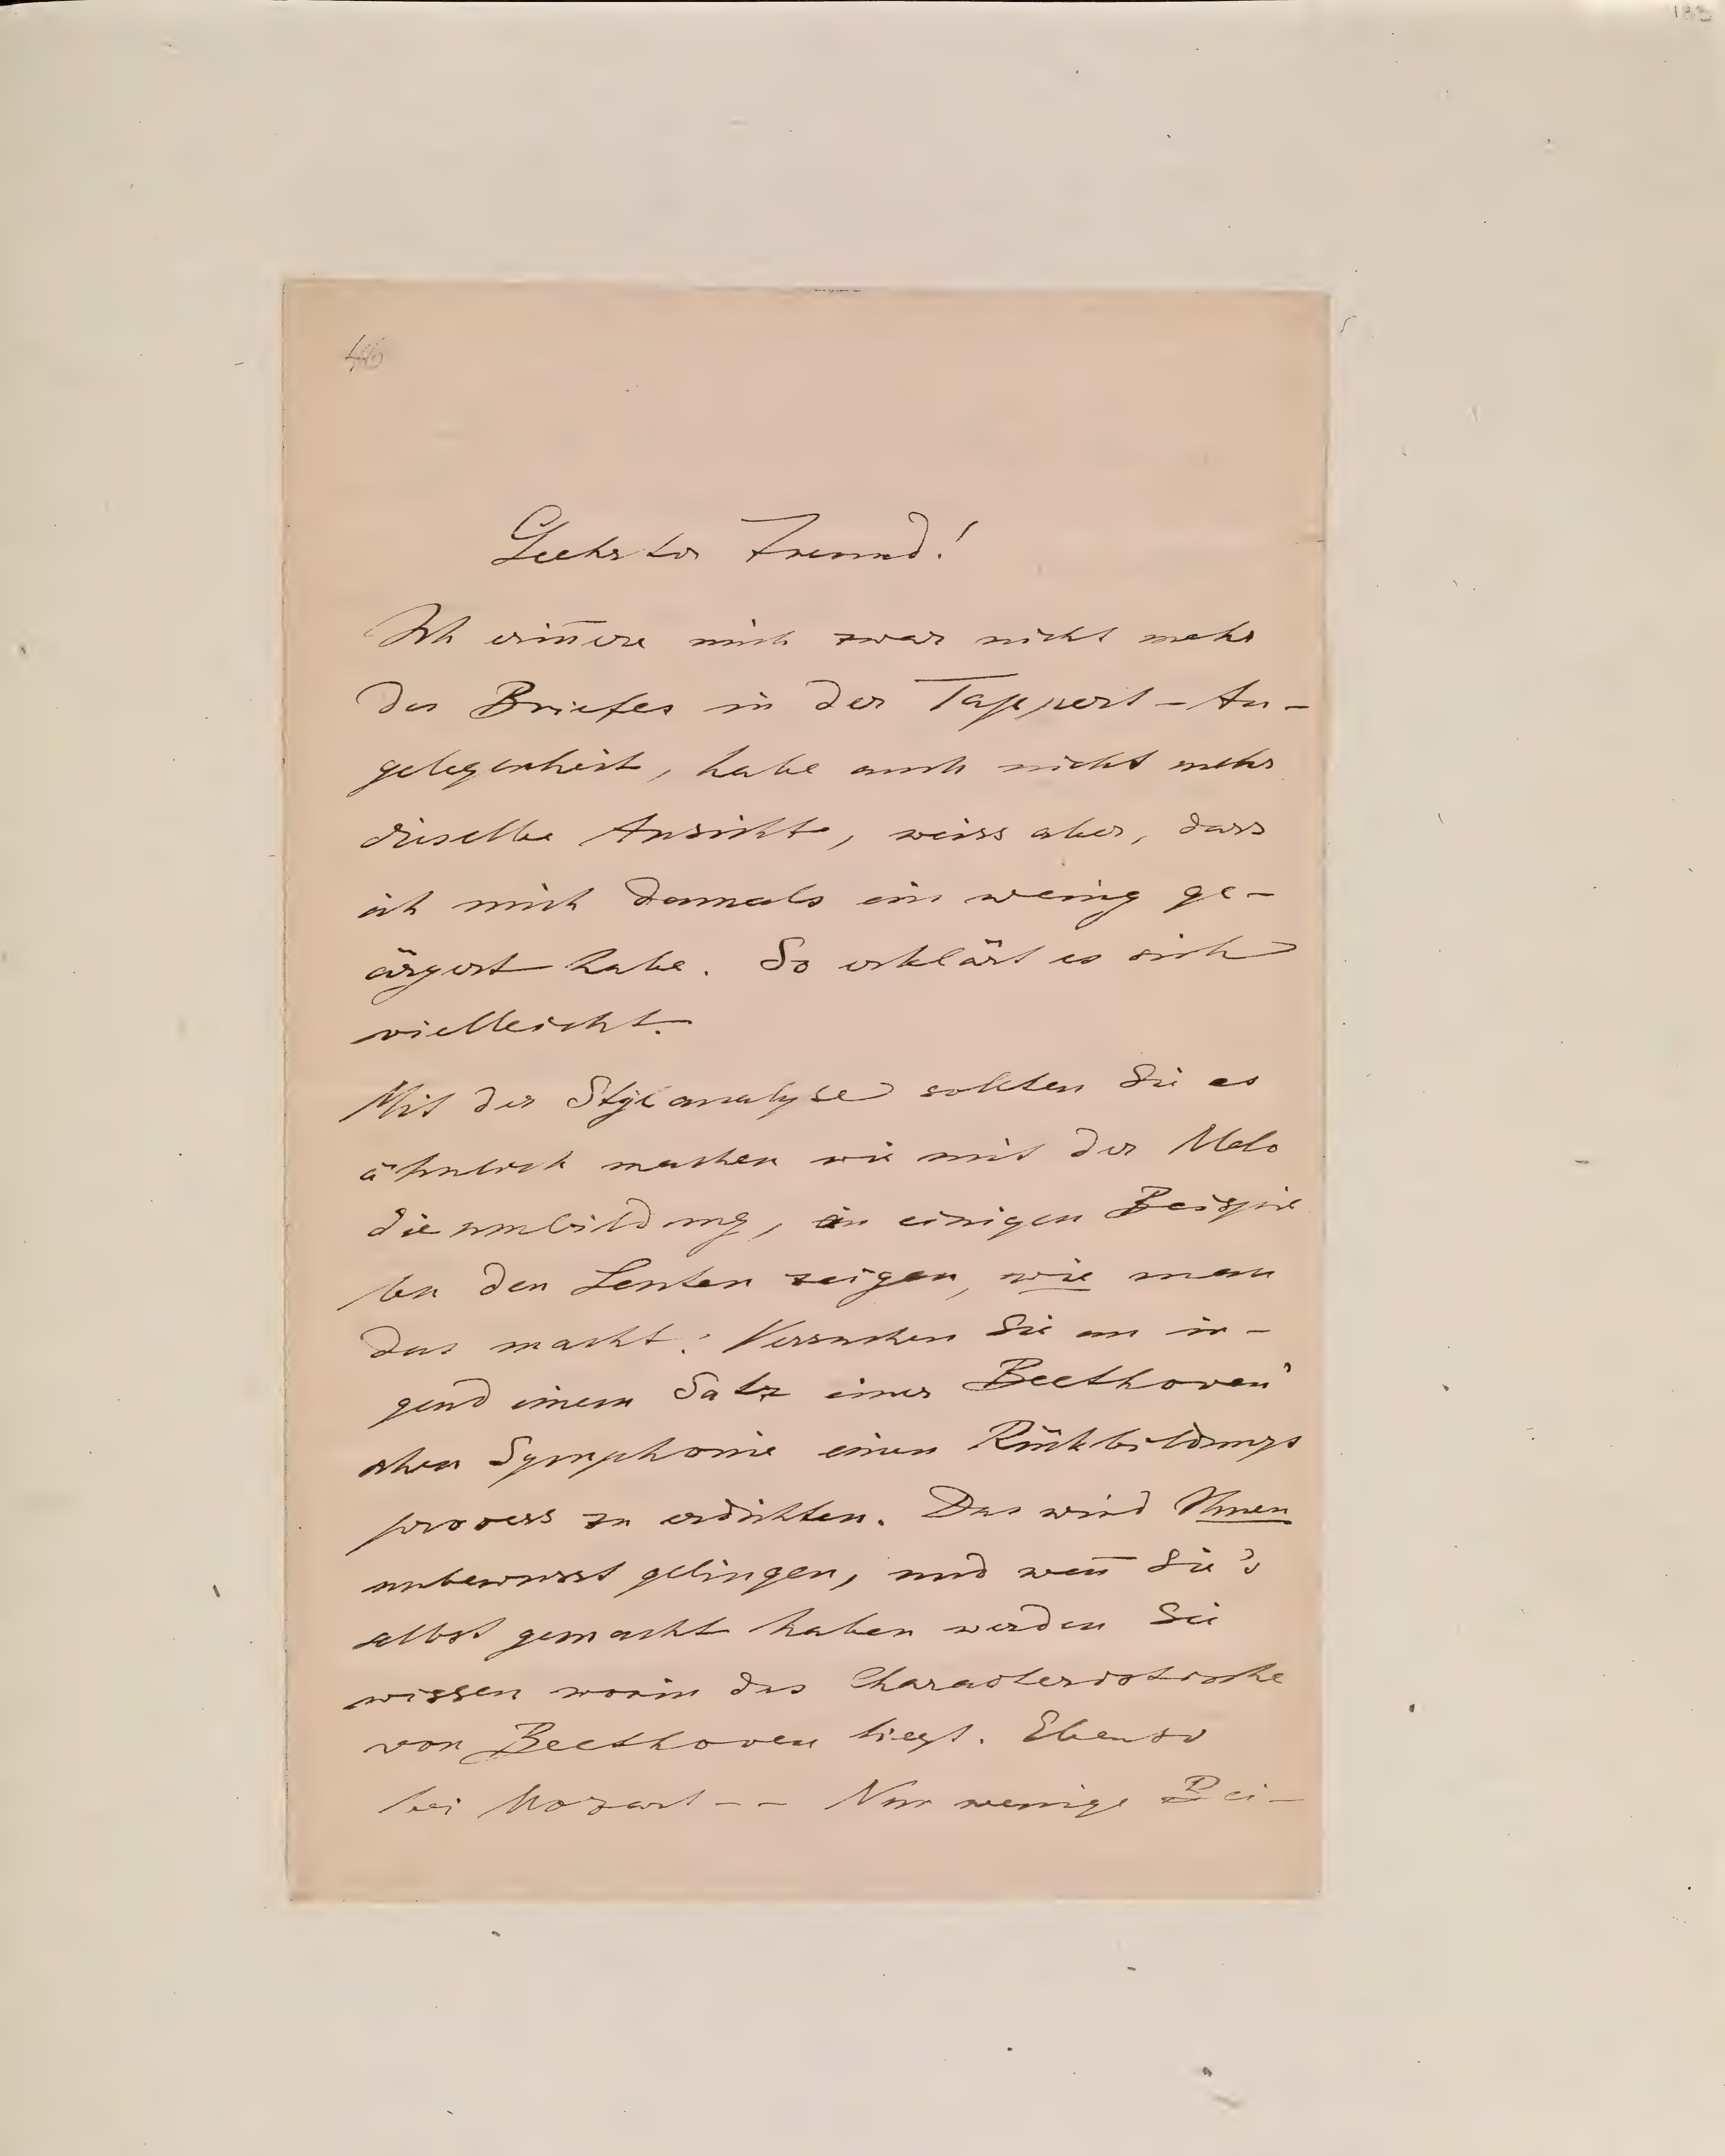 133
46
Geehrter Freund!
Ich erinnere mich zwar nicht mehr
des Briefes in der Tappert-An-
gelegenheit, habe auch nicht mehr
dieselbe Ansicht, weiss aber, dass
ich mich damals ein wenig ge-
ärgert habe. So erklärt es sich
vielleicht.
Mit der Stylanalyse sollten Sie es
ähnlich machen wie mit der Melo
dienumbildung, an einigen Beispie
len den Leuten zeigen, wie man
das macht: Versuchen Sie an ir-
gend einem Satz einer Beethoven'
schen Symphonie einen Rückbildungs
process zu erdichten. Das wird Ihnen
unbewusst gelingen, und wen̄ Sie's
selbst gemacht haben werden Sie
wissen worin das Characteristische
von Beethoven liegt. Ebenso
bei Mozart -- Nur wenige Bei-